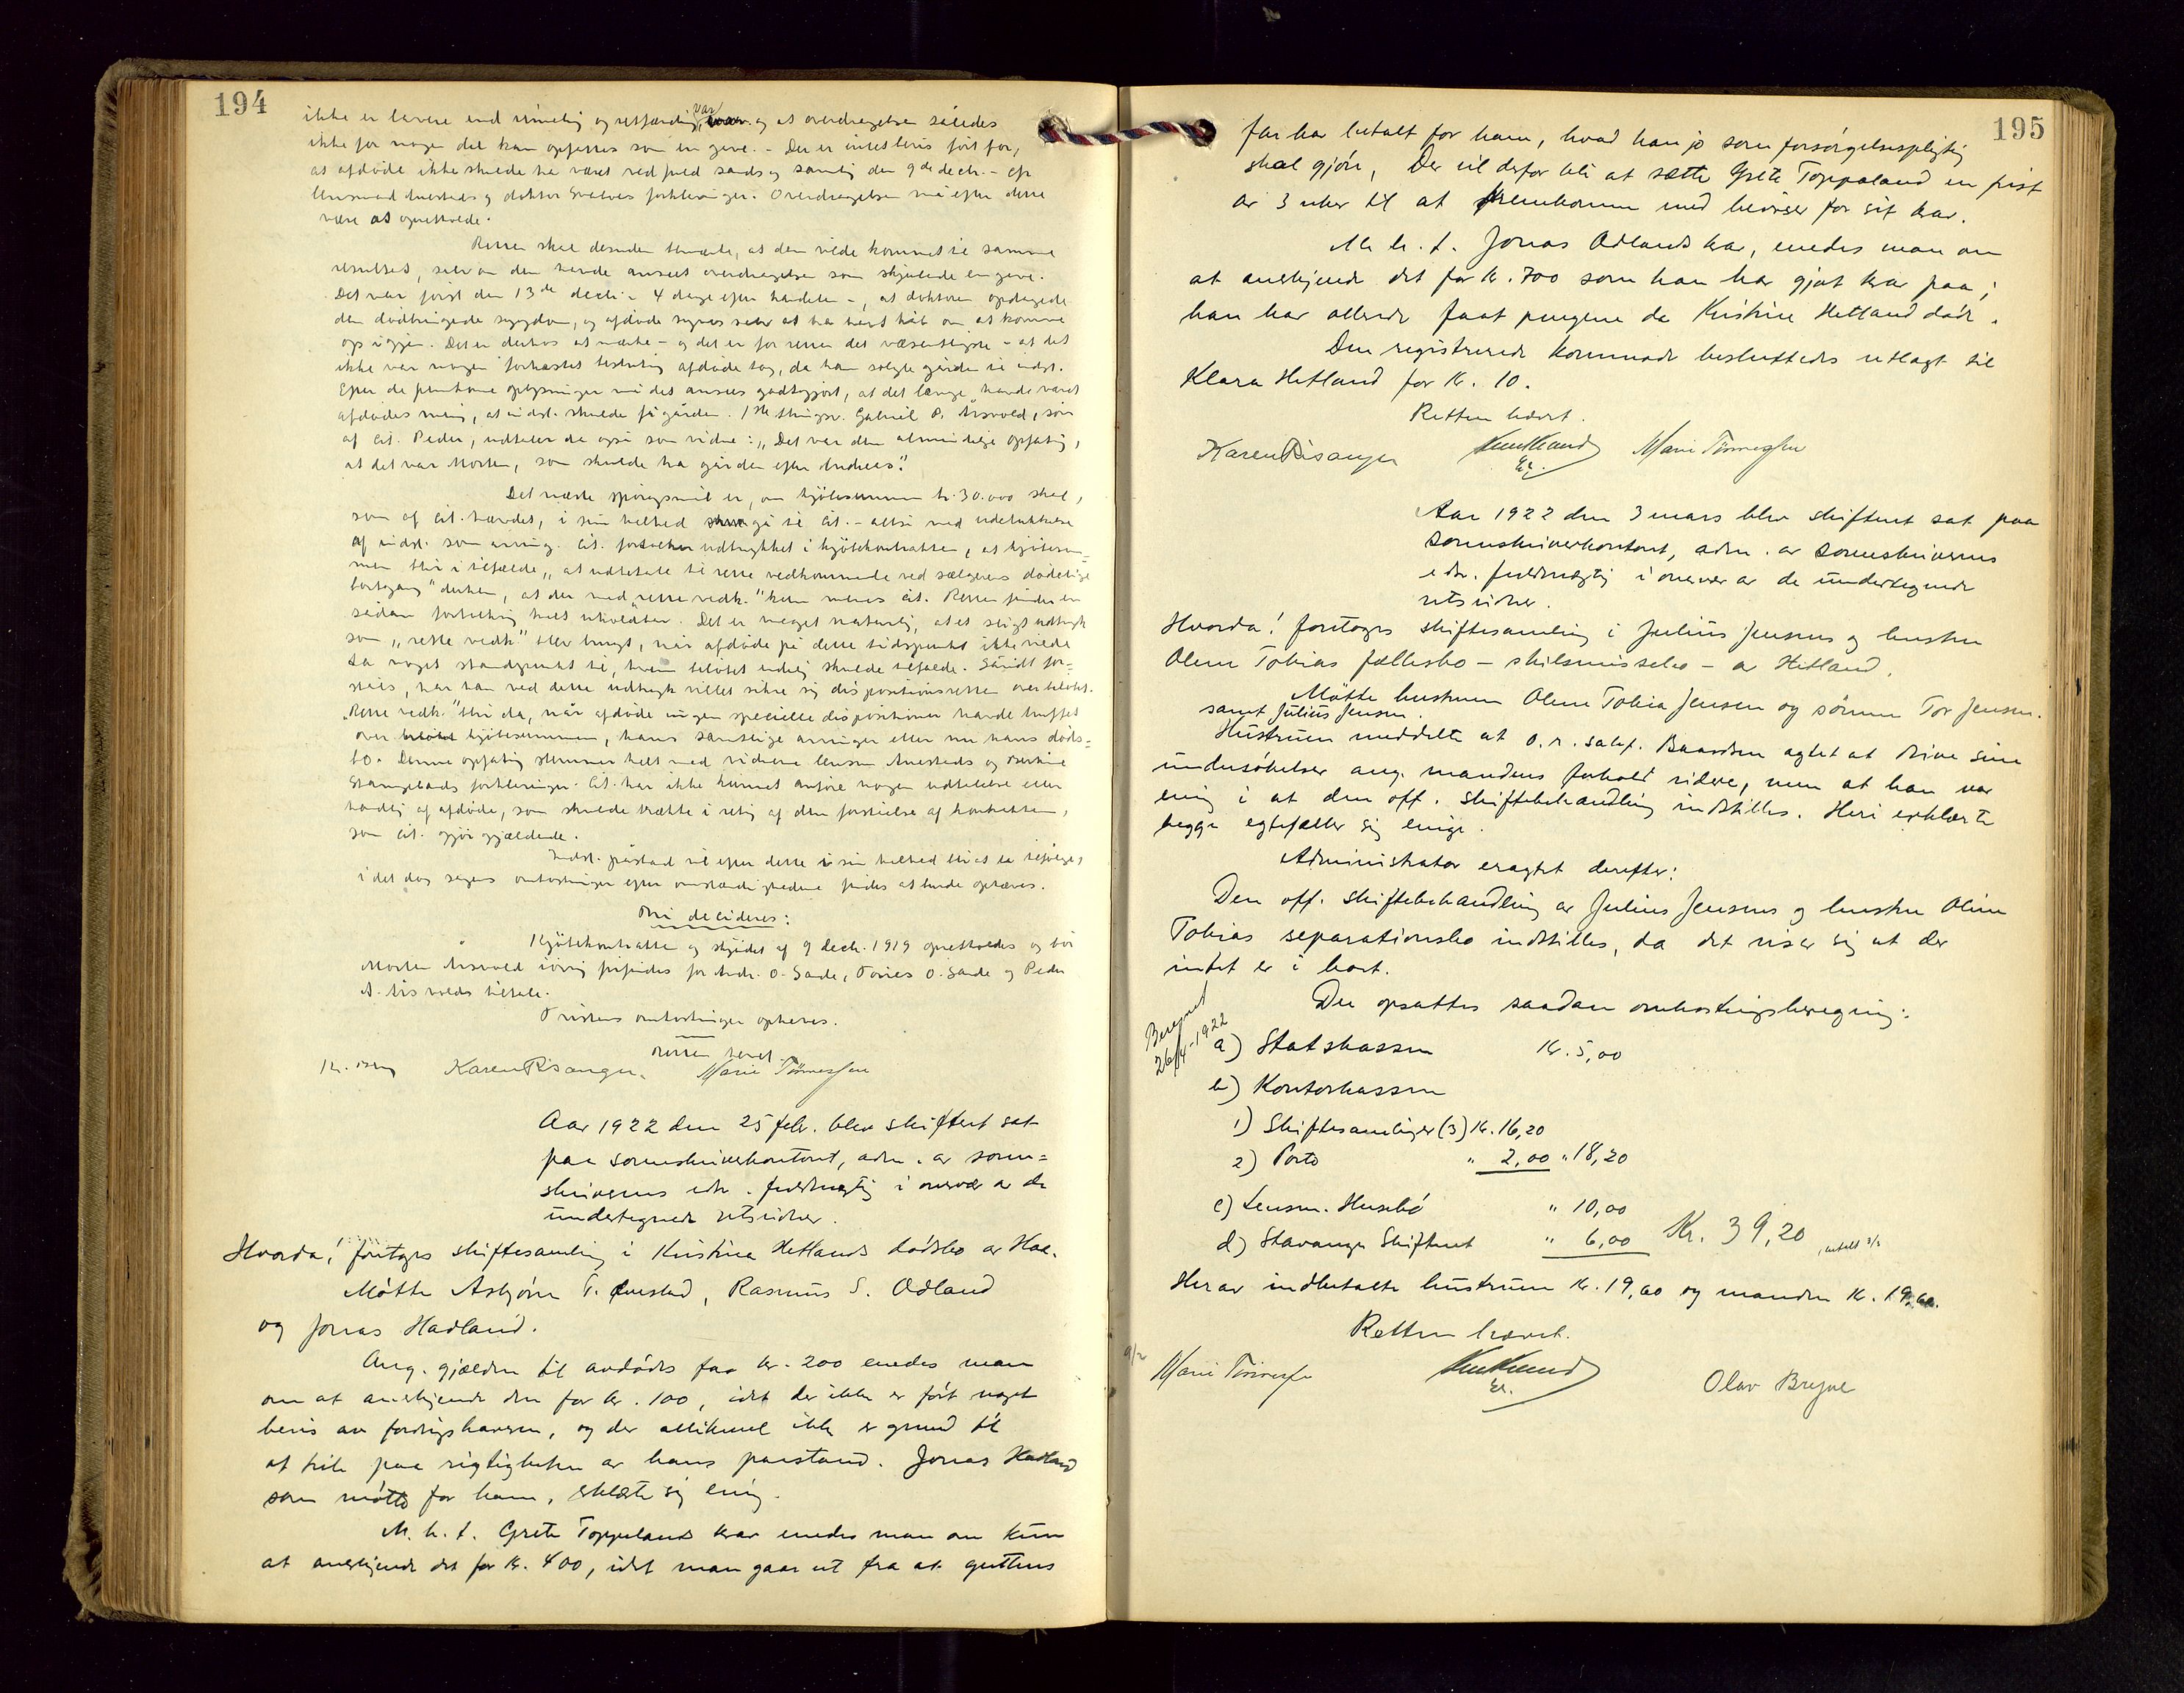 194
ikke er lavere end rimelig og retfærdig var og at overdragelsen således
ikke for nogen del kan opfattes som en gave. - Der er intet bevis ført for,
at afdøde ikke skulde ha været ved fuld sands og samling den 9de decbr. - cfr.
lensmand Auesteds og doktor forklaringer. Overdragelsen må efter dette
være at opretholde.
Retten skal desuden bemærke, at den vilde kommet til samme
resultat, selv om den havde anseet overdragelsen som skjulende en gave.
Det var først den 13de decbr. - 4 dage efter handelen -, at doktoren opdagede
den dødbringende sygdom, og afdøde synes selv at ha havt håb om at komme
op igjen. Det er derhos at mærke - og det er for retten det væsentligste - at det
ikke var nogen forhastet beslutning afdøde tog, da han solgte gården til indst.
Efter de fremkomne oplysninger må det ansees godtgjort, at det længe havde været
afdødes mening, at indst. skulde få gården. 1ste thingsv. Gabriel P. Årsvold, søn
af cit. Peder, udtaler da også som vidne: "Det var den almindelige opfatning,
at det var Morten, som skulde ha gården efter Andreas".
Det næste spørgsmål er, om kjøbesummen kr. 30.000 skal,
som af cit. hævdet, i sin helhed gå til cit. - altså med udelukkelse
af indst. som arving. Cit. fortolker udtrykket i kjøbekontrakten, at kjøbesum=
men blir i tilfælde "at udbetale til rette vedkommende ved sælgerens dødelige
bortgang" derhen, at der med "rette vedk." kun menes cit. Retten finder en
sådan fortolkning helt uholdbar. Det er meget naturlig, at et sligt udtryk
som "rette vedk." blev brugt, når afdøde på dette tidspunkt ikke vilde
ta noget standpunkt til, hvem beløbet endelig skulde tilfalde. Såvidt for=
ståes, har han ved dette udtryk villet sikre sig dispositionsretten over beløbet.
"Rette vedk." blir da, når afdøde ingen specielle dispositioner havde truffet
over kjøbesummen, hans samtlige arvinger eller nu hans døds=
bo. Denne opfatning stemmer helt med vidnerne lensm. Auesteds og
Stangelands forklaringer. Cit. har ikke kunnet anføre nogen udtalelse eller
handling af afdøde, som skulde trække i retning af den forståelse af kontrakten,
som cit. gjør gjældende.
Indst. påstand vil efter dette i sin helhed bli at ta tilfølge,
idet dog sagens omkostninger efter omstændighederne findes at burde ophæves.
Thi decideres:
Kjøbekontrakten og skjødet af 9 decbr. 1919 opretholdes og bør
Morten Årsvold iøvrig frifindes for Andr. O. Sande, Tønnes O. Sande og Peder
A. Årsvolds tiltale.
Tvistens omkostninger ophæves.
Retten hævet.
Karen Risanger. Marie Tønnessen
Aar 1922 den 25 febr. blev skifteret sat
paa sorenskriverkontoret, adm. av soren=
skriverens edsv. fuldmægtig i overvær av de
undertegnede retsvidner.
Hvorda! foretoges skiftesamling i Kristine Hetlands dødsbo av Haa.
Møtte Asbjørn T. Auestad, Rasmus S. Ødland
og Jonas Hadland.
Ang. gjælden til avdødes far kr. 200 enedes man
om at anerkjende den for kr. 100, idet der ikke er ført noget
bevis av fordringshaveren, og der allikevel ikke er grund til
at tvile paa rigtigheten av hans paastand. Jonas Hadland
som møtte for ham, erklærte sig enig.
M. h. t. Grete Toppelands krav enedes man om kun
at anerkjende det for kr. 400, idet man gaar ut fra at guttens
195
far har betalt for ham, hvad han jo som forsørgelsespligtig
skal gjøre. Der vil derfor bli at sætte Grete Toppaland en frist
av 3 uker til at fremkomme med beviser for sit krav.
M. h. t. Jonas Ødlands krav, enedes man om
at anerkjende det for kr. 700 som han har gjort krav paa;
han har allerede faat pengene da Kristine Hetland døde.
Den registrerede kommode besluttedes utlagt til
Klara Hetland for kr. 10.
Retten hævet.
Karen Risanger Marie Tønnessen
Aar 1922 den 3 mars blev skifteret sat paa
sorenskriverkontoret, adm. av sorenskriverens
edsv. fuldmægtig i overvær av de undertegnede
retsvidner.
Hvorda! foretoges skiftesamling i Julius Jensens og hustru
Oline Tobias fællesbo - skilsmissebo - av Hetland.
Møtte hustruen Oline Tobia Jensen og sønnen Tor Jensen.
samt Julius Jensen.
Hustruen meddelte at o. r. sakf. Baardsen agtet at drive sine
undersøkelser ang. mandens forhold videre, men at han var
enig i at den off. skiftebehandling indstilles. Heri erklærte
begge egtefæller sig enige.
Administrator eragtet derefter:
Den off. skiftebehandling av Julius Jensens og hustru Oline
Tobias separationsbo indstilles, da det viser sig at der
intet er i boet.
Der opsattes saadan omkostningsberegning:
Beregnet
26/4-1922
a) Statskassen kr. 5,00
b) Kontorkassen
1) Skiftesamlinger (3) kr. 16,20
2) Porto " 2,00 " 18,20
c) Lensm. Husebø " 10,00
d) Stavanger Skifteret " 6,00 Kr. 39,20, betalt 3/3
Herav indbetalte hustruen kr. 19,60 og manden kr. 19,60.
Retten hævet.
Marie Tønnessen Olav Brejve